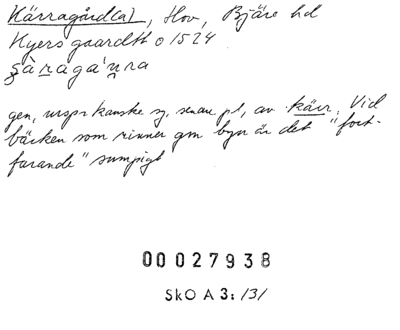 Kärragård(a), Hov, Bjäre hd
Kyersgaardth o 1524
şàragá'nra
gen, urspr kanske sg, senare pl, av kärr. Vid
bäcken som rinner gm byn är det "fort-
farande" sumpigt
00027938
SkO A 3: 131